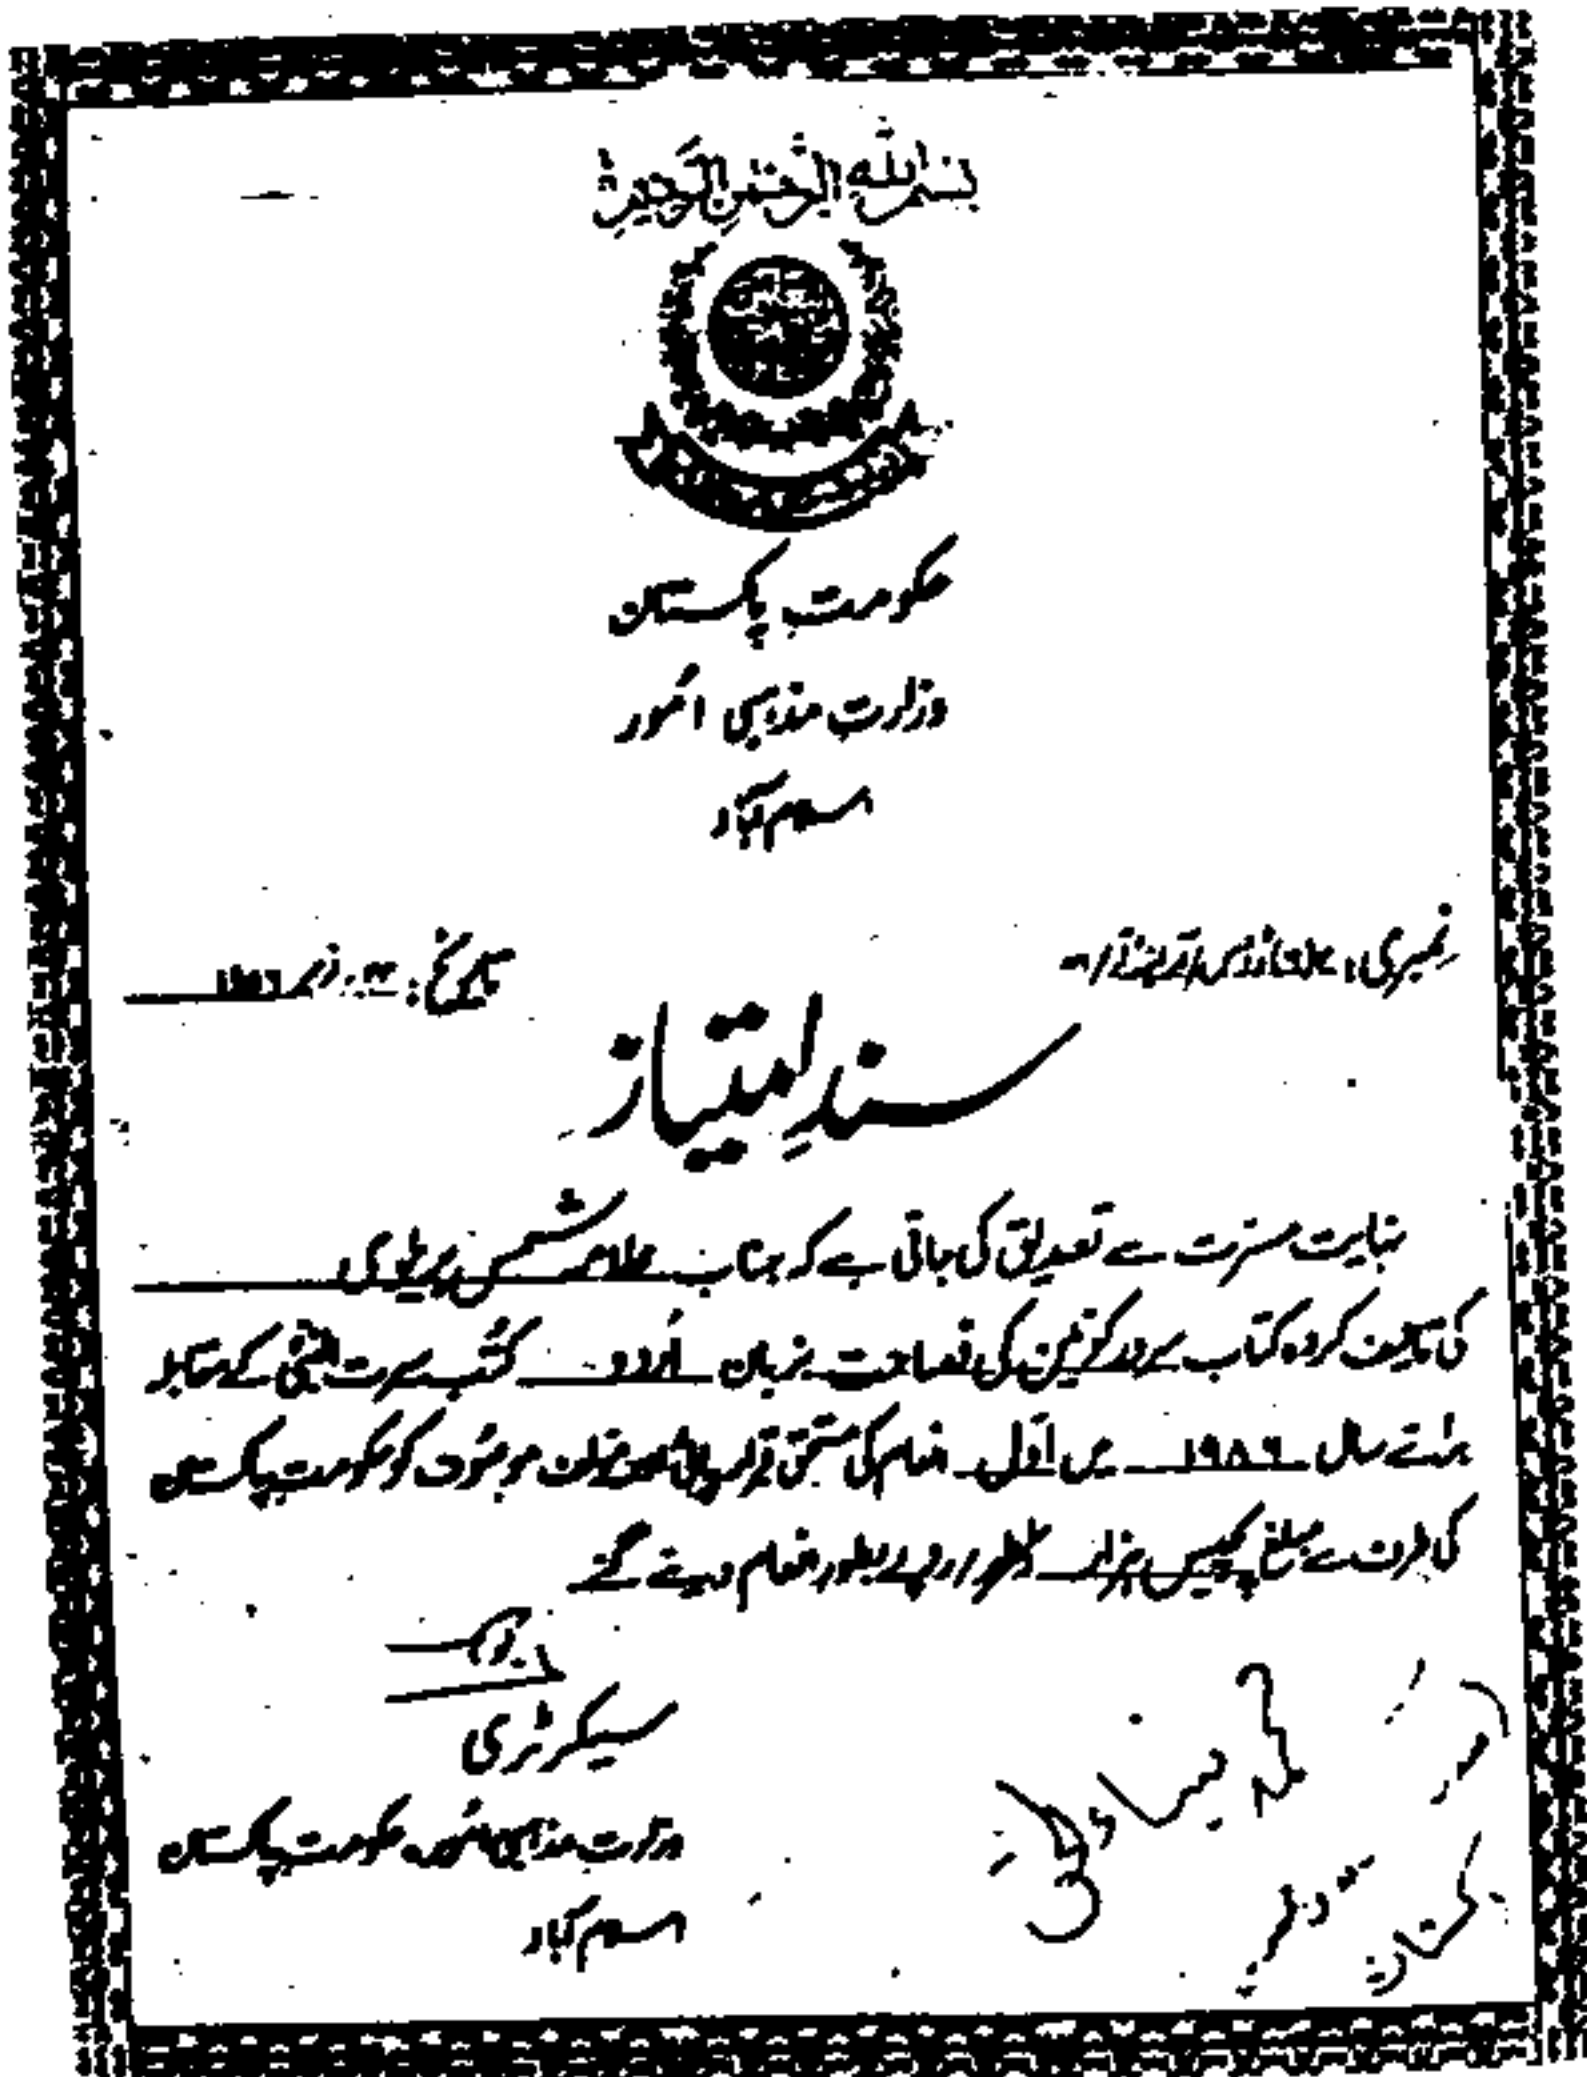 بسم الله الرحمن الرحيم
حکومت پاکستان
وزارت مذہبی امور
اسلام آباد
نمبری:
تاریخ: ۱۹۸۶
سندِ امتیاز
نہایت مسرت سے تصدیق کی جاتی ہے کہ جناب علامہ شمس بریلوی
کی تالیف کردہ کتاب سرور کونین کی فصاحت بزبان اُردو کتب سیرت کے مقابلہ
برائے سال ۱۹۸۶ میں اوّل انعام کی مستحق قرار پائی موصوف کو حکومت پاکستان
کی طرف سے مبلغ پچیس ہزار روپے بطور انعام دیئے گئے
سیکرٹری
وزارت مذہبی امور حکومت پاکستان
اسلام آباد